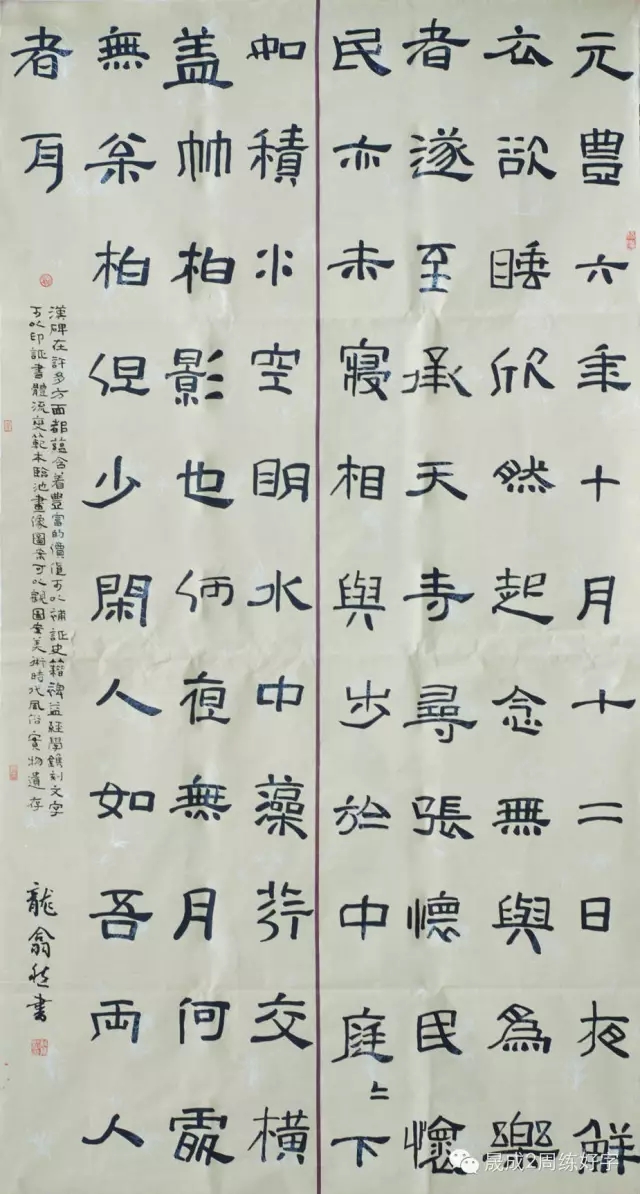 元豊六年十月十二日夜解
衣欲睡欣然起念無與為樂
者遂至承天寺尋張懷民懷
民亦未寝相與步於中庭〻下
如積水空明水中藻荇交橫
盖竹柏影也何夜無月何處
無竹柏但少閑人如吾兩人
者耳
漢碑在許多方面都蘊含着豊富的價值可以補証史籍裨益經學鐫刻文字
可以印証書體流變範本臨池畫像圖案可以觀圖案美術時代風俗實物遺存
龍翕書
晟成2周练好字